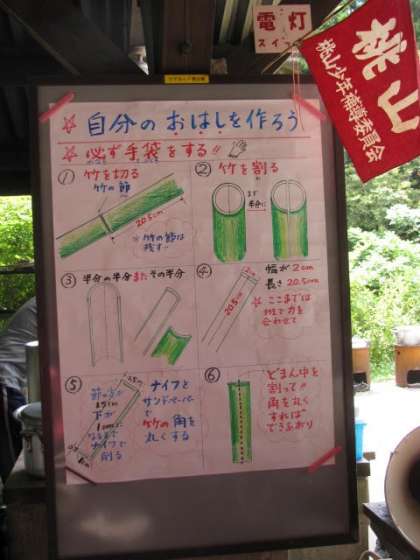 電灯
スイッチ
桃山
桃山少年補導委員会
☆ 自分のおはしを作ろう
☆ 必ず手袋をする!!
① 竹を切る
竹の節
20.5cm
※竹の節は
残す!!
② 竹を割る
まず
半分に
③ 半分の半分またその半分
④ 幅が2cm
長さ20.5cm
2cm
20.5cm
☆ ここまでは
班で力を
合わせて
⑤
ナイフと
サンドペーパー
で
竹の角を
丸くする
下が
1cmに
なるまで
ナイフで
削る
⑥ どまん中を
割って!!
角を丸く
すれば
できあがり